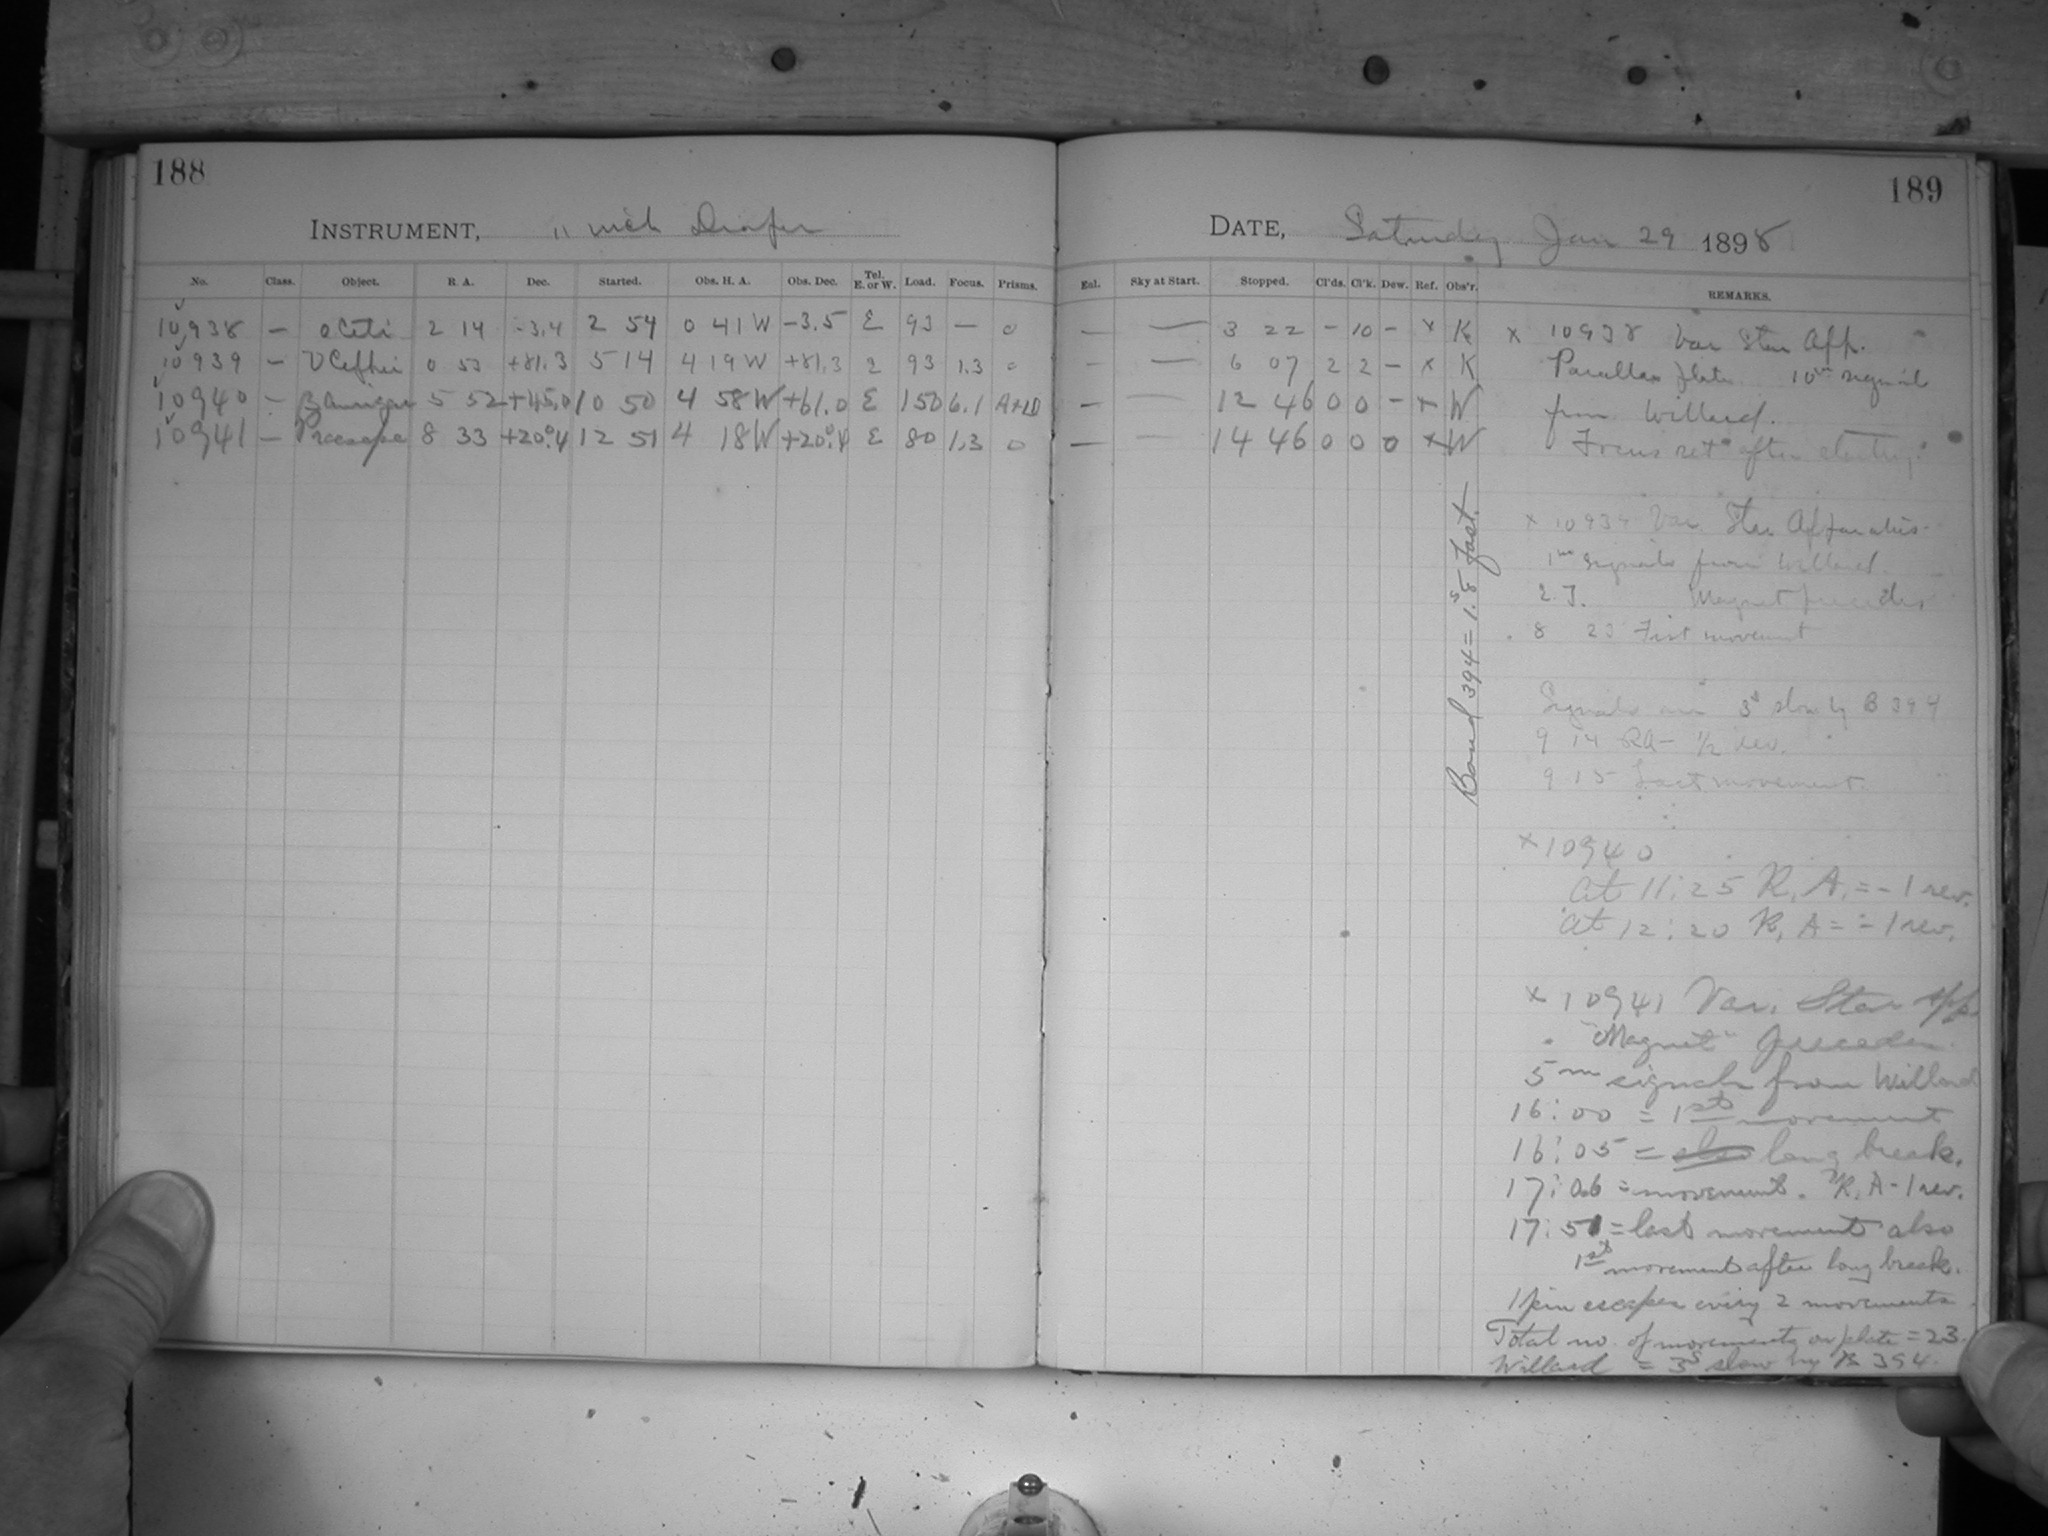 188
INSTRUMENT, 11 inch Draper
No. Class. Object. R. A. Dec. Started. Obs. H. A. Obs. Dec. Tel. E. or W. Load. Focus. Prisms.
10938 — o Ceti 2 14 -3.4 2 54 0 41 W -3.5 E 93 — 0
10939 — U Cephei 0 53 +81.3 5 14 4 19 W +81.3 E 93 1.3 0
10940 — β Aurigae 5 52 +45.0 10 50 4 58 W +61.0 E 150 6.1
10941 — Praesepe 8 33 +20°.4 12 51 4 18 W +20°.4 E 80 1.3 0
189
DATE, Saturday Jan 29 1898
Eul. Sky at Start. Stopped. Cl'ds. Cl'k. Dew. Ref. Obs'r. REMARKS.
— — 3 22 - 10 - x K
— — 6 07 2 2 - x K
— — 12 46 0 0 - x W
— — 14 46 0 0 0 x W
Bond 394 = 1.8s fast.
x 10938 Var Star App.
Parallax plate 10m signals
from Willard.
Focus set after starting.
x 10939 Var. Star Apparatus
1m signals from Willard.
Magnet precedes
8 23 First movement
Signals are 3s slow by B 394
9 14 RA - 1/2 rev.
9 15 Last movement.
x 10940
At 11:25 R. A. = - 1 rev.
At 12:20 R. A = - 1 rev.
x 10941 Var. Star App.
"Magnet" precedes.
5m signals from Willard
16:00 = 1st movement
16:05 = long break.
17:06 = movement. R. A - 1 rev.
17:51 = last movement also
1st movement after long break.
1 pin escapes every 2 movements
Total no. of movements on plate = 23.
Willard = 3s slow by B 394.